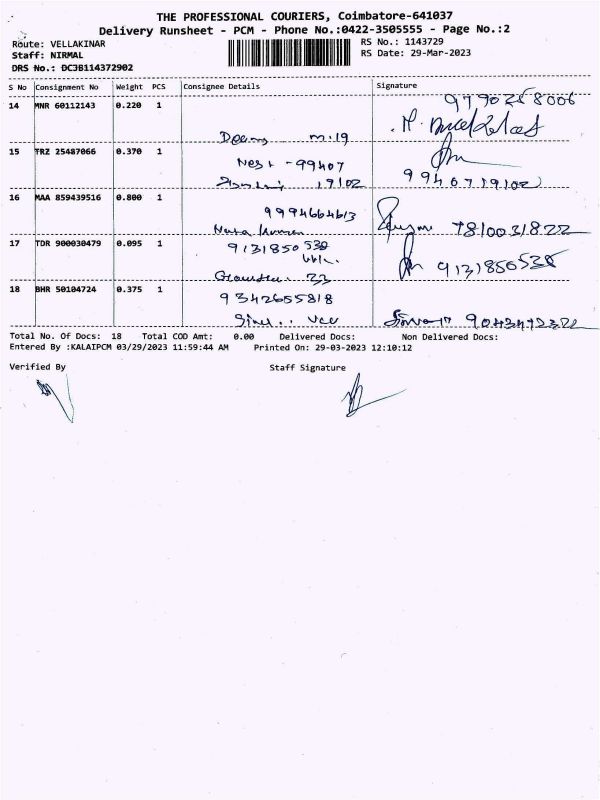 THE PROFESSIONAL COURIERS, Coimbatore-641037
Delivery Runsheet - PCM - Phone No.:0422-3505555 - Page No.:2
Route: VELLAKINAR
RS No.: 1143729
Staff: NIRMAL
RS Date: 29-Mar-2023
DRS No.: DC3B114372902
S No Consignment No Weight PCS Consignee Details Signature
14 MNR 60112143 0.220 1
9790258006
m.19
15 TRZ 25487066 0.370 1
- 99407
19102
9940719102
16 MAA 859439516 0.800 1
9994664613
7810031822
17 TDR 900030479 0.095 1
9131850538
33
9131850538
18 BHR 50104724 0.375 1
9342655818
Total No. Of Docs: 18 Total COD Amt: 0.00 Delivered Docs: Non Delivered Docs:
Entered By :KALAIPCM 03/29/2023 11:59:44 AM Printed On: 29-03-2023 12:10:12
Verified By
Staff Signature